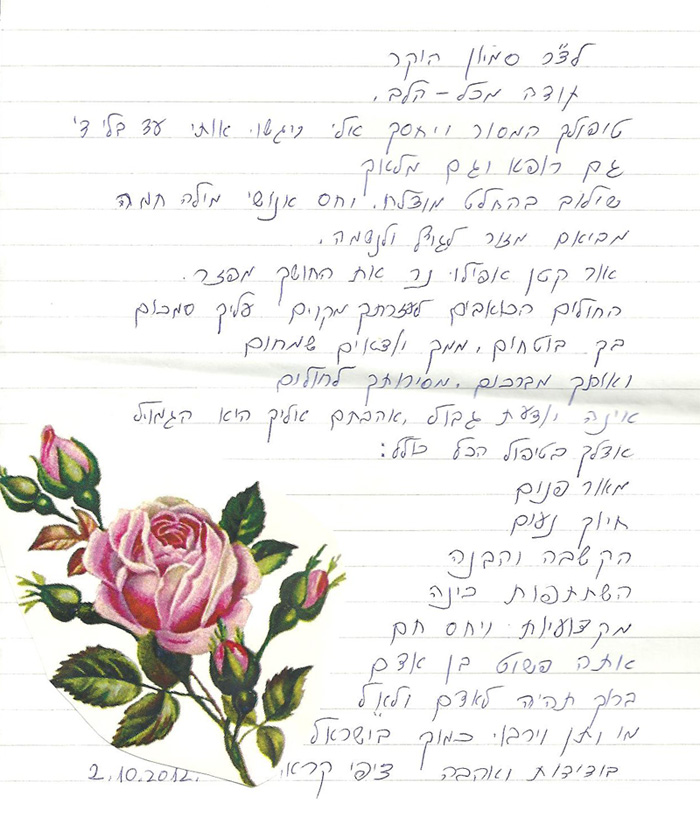 לד"ר סמיון הוקר
תודה מכל-הלב.
טיפולך המסור ויחסך אלי ריגשו אותי עד בלי די
גם רופא וגם מלאך
שילוב בהחלט מוצלח. יחס אנושי מילה חמה
מביאים מזור לגוף ולנשמה.
אור קטן אפילו נר את החושך מפזר.
החולים הכואבים לעזרתך מקוים עליך סמכום
בך בוטחים, ממך יוצאים שמחים
ואותך מברכים, מסירותך לחולים
אינה יודעת גבול, אהבתם אליך היא הגמול
אצלך בטיפול הכל כלול:
מאור פנים
חיוך נעים
הקשבה והבנה
השתתפות כינה
מקצועיות ויחס חם
אתה פשוט בן אדם
ברוך תהיה לאדם ולאל
מי יתן וירבו כמוך בישראל
בידידות ואהבה ציפי קראי
2.10.2012.